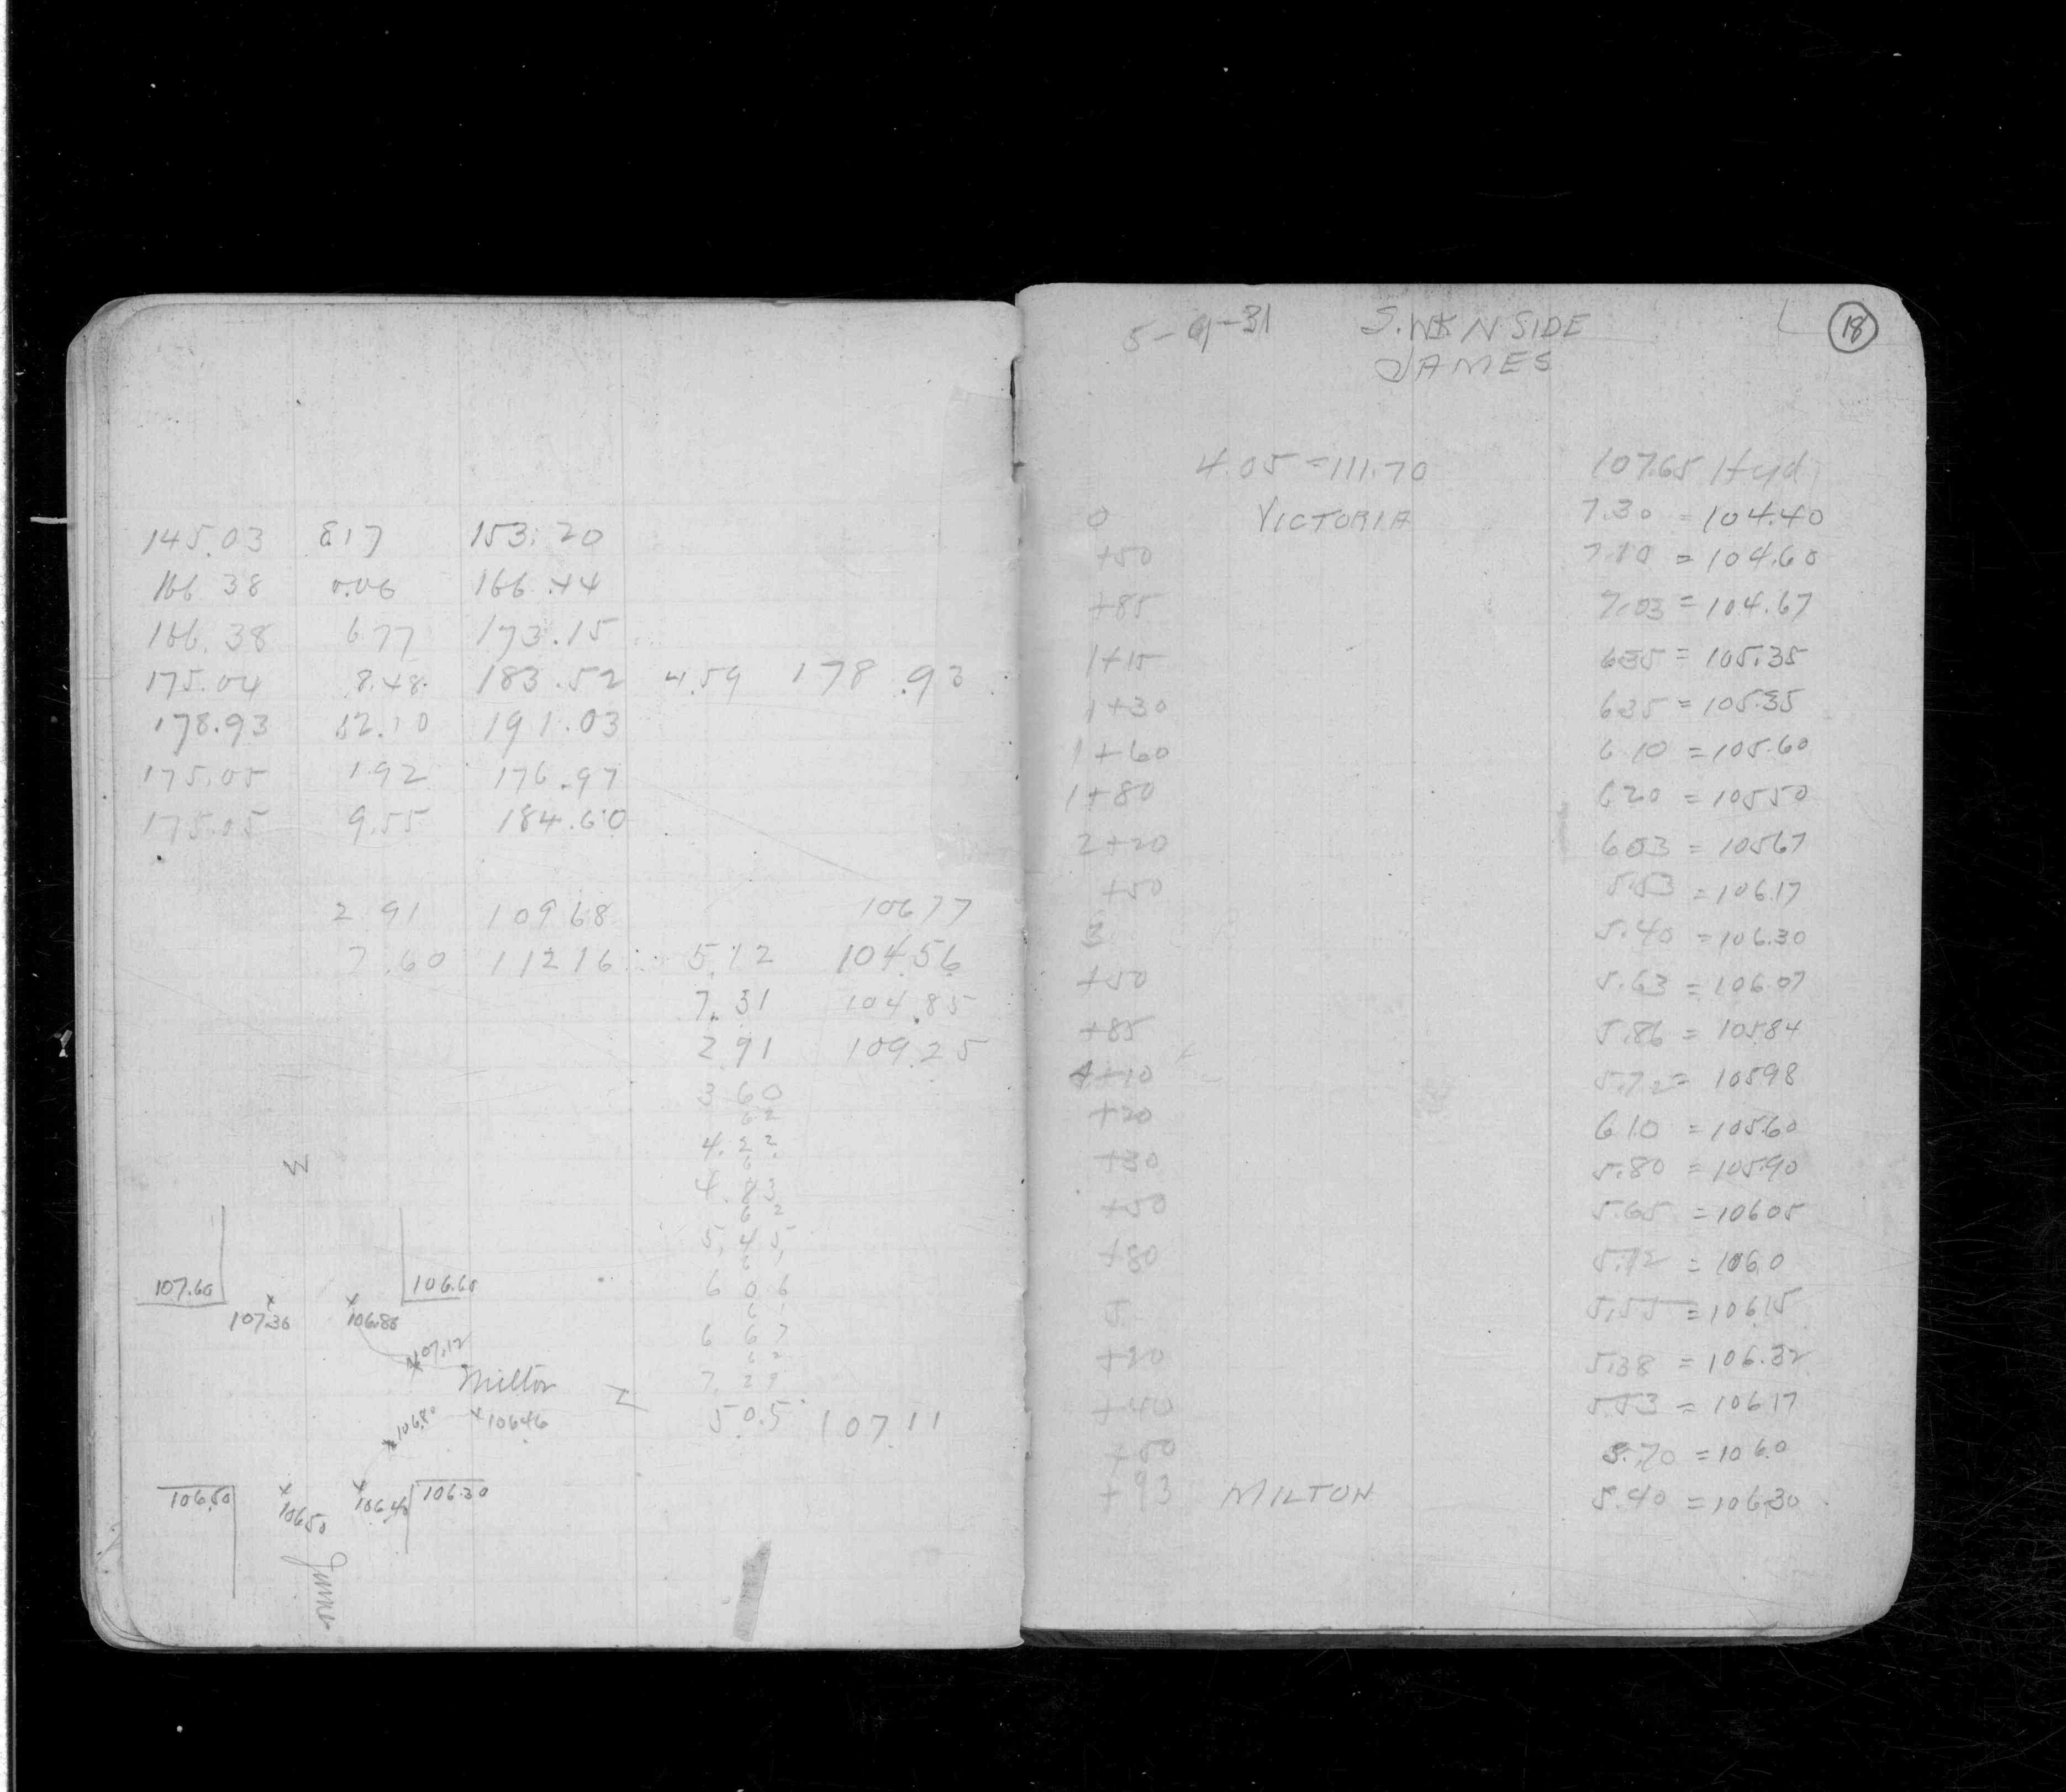 145.03 8.17 153.20
166.38 0.06 166.44
166.38 6.77 173.15
175.04 8.48 183.52 4.59 178.93
178.93 12.10 191.03
175.05 1.92 176.97
175.05 9.55 184.60
2.91 109.68 106.77
7.60 112.16 5.12 104.56
7.31 104.85
2.91 109.25
3.60
62
4.22
6
4.83
62
5.45
61
6 06
61
6 67
62
7.29
5 0.5 107.11
107.60 106.60
107.30 106.80
107.12
Milton
106.80 106.46
106.50 106.40 106.30
106.50
James
5-9-31 S.WK N SIDE 18
JAMES
4.05 = 111.70 107.65 Hyd
0 VICTORIA 7.30 = 104.40
+50 7.10 = 104.60
+85 7.03 = 104.67
1+15 6.35 = 105.35
1+30 6.35 = 105.35
1+60 6.10 = 105.60
1+80 6.20 = 105.50
2+20 6.03 = 105.67
+50 5.53 = 106.17
3 5.40 = 106.30
+50 5.63 = 106.07
+85 5.86 = 105.84
4+10 5.72 = 105.98
+20 6.10 = 105.60
+30 5.80 = 105.90
+50 5.65 = 106.05
+80 5.72 = 106.0
5 5.55 = 106.15
+20 5.38 = 106.32
+40 5.53 = 106.17
+50 5.70 = 106.0
+93 MILTON 5.40 = 106.30